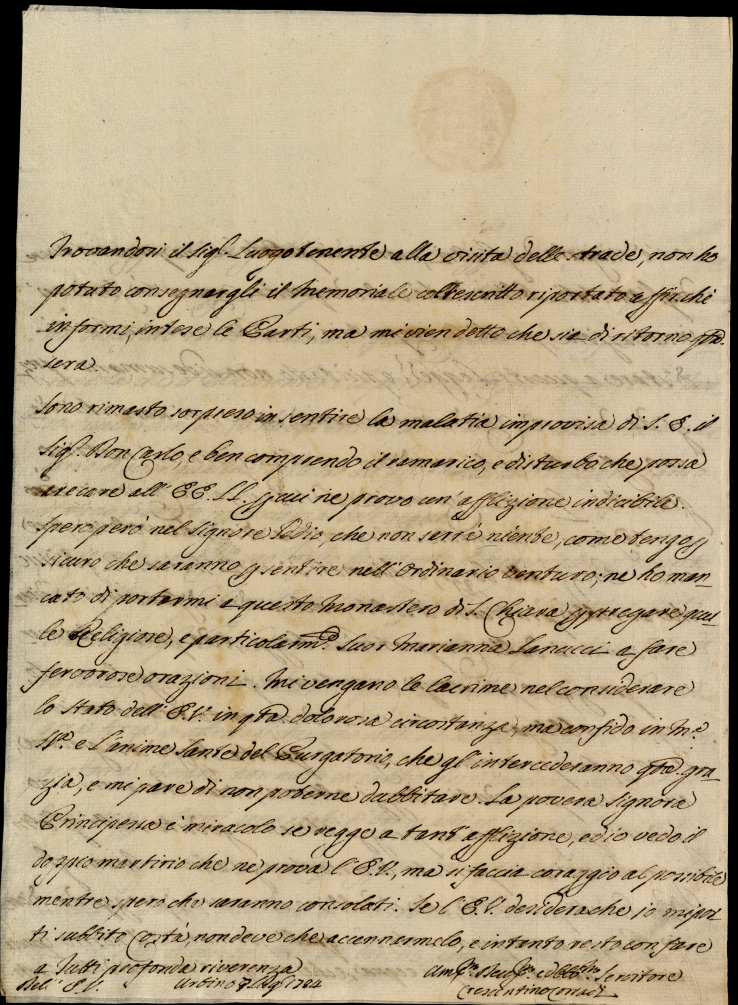 Trovandosi il Sig.r Luogotenente alla visita delle strade, non ho
potuto consegnargli il Memoriale col rescritto riportato affinchè
informi, intese le Parti, ma mi vien detto che sia di ritorno q.ta
sera.
Sono rimasto sorpreso in sentire la malatia improvisa di S. E. il
Sig.r Don Carlo, e ben comprendo il ramarico, e disturbo che possa
arecare all' EE. LL. p cui ne provo un' afflizione indicibile.
Spero però nel Signore Iddio, che non serrà niente, come tengo p
sicuro che saranno p sentire nell' Ordinario venturo; ne ho man-
cato di portarmi a questo Monastero di S. Chiara p pregare quel-
le Religiose, e particolarm.e Suor Marianna Lanucci a fare
fervorose orazioni. Mi vengano le lacrime nel considerare
lo Stato dell' E.V. in q.ta dolorosa circostanza, ma confido in M.a
SS.a e l'Anime Sante del Purgatorio, che gl' intercederanno q.ta gra-
zia, e mi pare di non poterne dubbitare. La povera Signora
Principessa è miracolo se regge a tant' afflizione, ed io vedo il
doppio martirio che ne prova l' E.V., ma si faccia coraggio al possibile
mentre spero che saranno consolati. Se l' E.V. desidera che io mi por-
ti subbito costà, non deve che accennarmelo, e intanto resto con fare
a Tutti profonda riverenza
Dell' E. V. Urbino 7 1784 Um.o Dev.o ed Obb.o Servitore
Crescentino